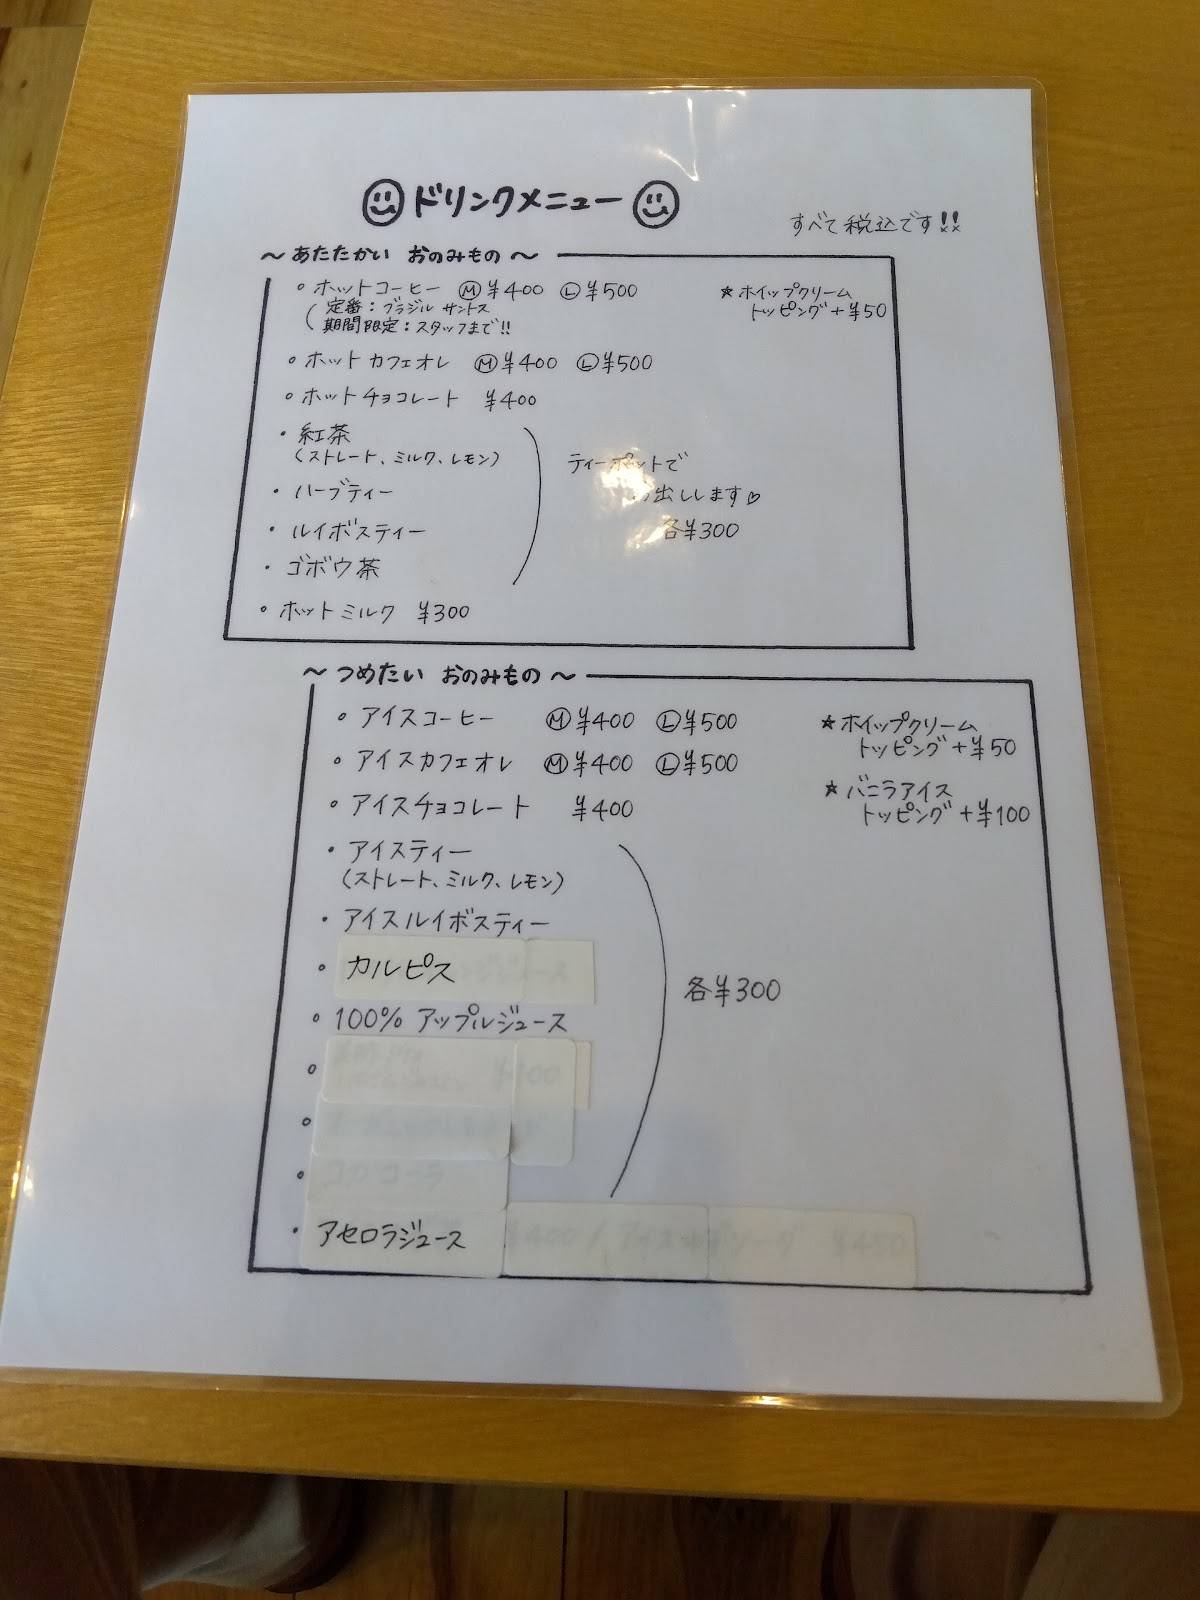 ドリンクメニュー
すべて税込です!!
～あたたかい おのみもの～
ホットコーヒー Ⓜ¥400 Ⓛ¥500
(定番：ブラジル サントス
期間限定：スタッフまで!!
☆ホイップクリーム
トッピング+¥50
ホットカフェオレ Ⓜ¥400 Ⓛ¥500
ホットチョコレート ¥400
・紅茶
(ストレート、ミルク、レモン)
・ハーブティー
・ルイボスティー
・ゴボウ茶
ティーポットで
出しします♡
各¥300
ホットミルク ¥300
～つめたい おのみもの～
アイスコーヒー Ⓜ¥400 Ⓛ¥500
アイスカフェオレ Ⓜ¥400 Ⓛ¥500
アイスチョコレート ¥400
☆ホイップクリーム
トッピング+¥50
☆バニラアイス
トッピング+¥100
・アイスティー
(ストレート、ミルク、レモン)
・アイスルイボスティー
カルピス
100% アップルジュース
各¥300
・アセロラジュース